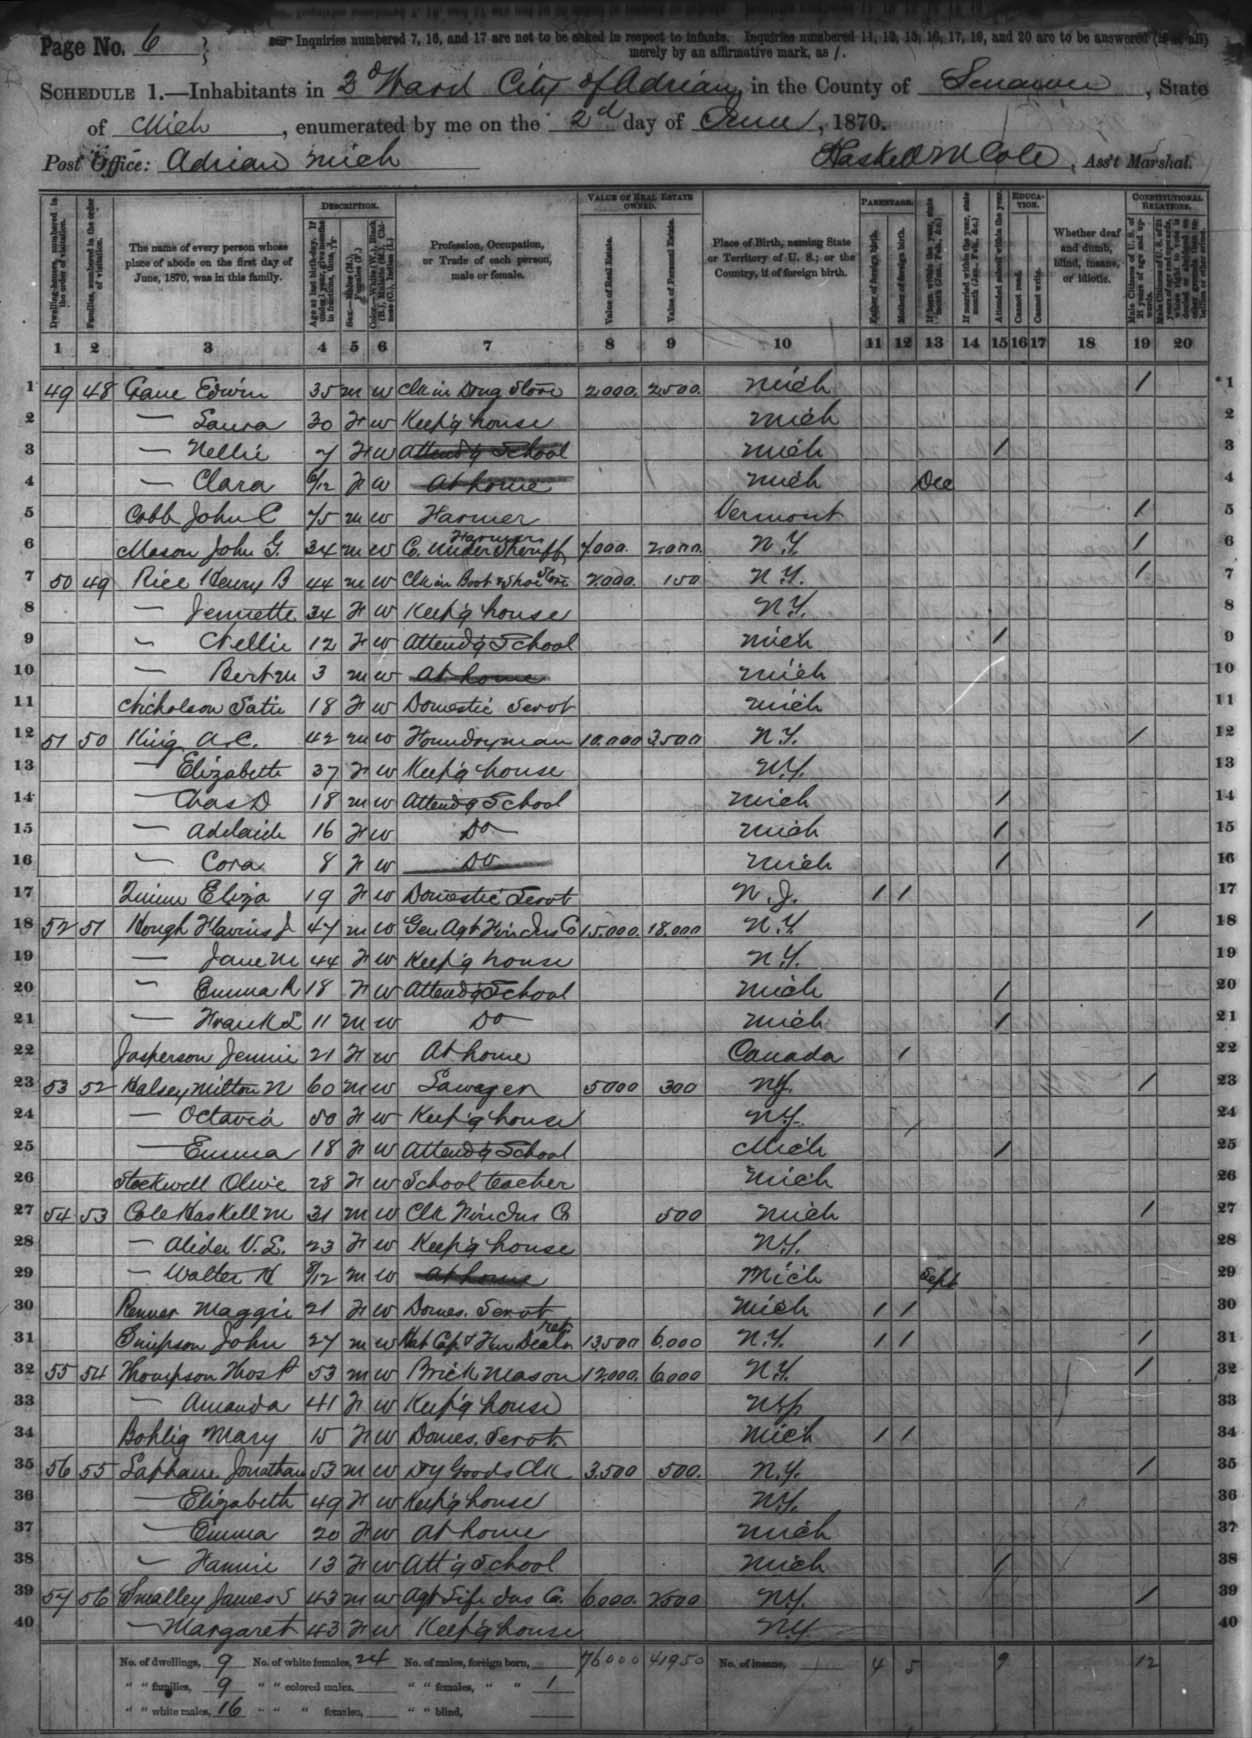 Page No. 6
Inquiries numbered 7, 16, and 17 are not to be asked in respect to infants. Inquiries numbered 11, 12, 15, 16, 17, 19, and 20 are to be answered (if at all)
merely by an affirmative mark, as /.
SCHEDULE 1.—Inhabitants in 3d Ward City of Adrian, in the County of Lenawee, State
of Mich, enumerated by me on the 2d day of June, 1870.
Post Office: Adrian Mich Haskell M Cole, Ass't Marshal.
Dwelling-houses, numbered in the order of visitation.
Families, numbered in the order of visitation.
The name of every person whose place of abode on the first day of June, 1870, was in this family.
DESCRIPTION.
Age at last birth-day. If under 1 year, give months in fractions, thus, 3/12
Sex.—Males (M.), Females (F.)
Color.—White (W.), Black (B.), Mulatto (M.), Chinese (C.), Indian (I.)
Profession, Occupation, or Trade of each person, male or female.
VALUE OF REAL ESTATE OWNED.
Value of Real Estate.
Value of Personal Estate.
Place of Birth, naming State or Territory of U. S.; or the Country, if of foreign birth.
PARENTAGE.
Father of foreign birth.
Mother of foreign birth.
If born within the year, state month (Jan., Feb., &c.)
If married within the year, state month (Jan., Feb., &c.)
Attended school within the year.
EDUCATION.
Cannot read.
Cannot write.
Whether deaf and dumb, blind, insane, or idiotic.
CONSTITUTIONAL RELATIONS.
Male Citizens of U. S. of 21 years of age and upwards.
Male Citizens of U. S. of 21 years of age and upwards, whose right to vote is denied or abridged on other grounds than rebellion or other crime.
1 2 3 4 5 6 7 8 9 10 11 12 13 14 15 16 17 18 19 20
1 49 48 Edwin 35 M W Clk in Drug Store 2,000. 2500. Mich / 1
2 — Laura 30 F W Keep'g house Mich 2
3 — Nellie 7 F W Attend'g School Mich / 3
4 — Clara 6/12 F W At home Mich Dec 4
5 Cobb John C 75 M W Farmer Vermont / 5
6 Mason John G. 34 M W Farmer C. Under Sheriff 7,000. 2,000. N.Y. / 6
7 50 49 Rice Henry B 44 M W Clk in Boot & Shoe Store 2,000. 150 N.Y. / 7
8 — Jennette 34 F W Keep'g house N.Y. 8
9 — Nellie 12 F W Attend'g School Mich / 9
10 — Bert M 3 M W At home Mich 10
11 Nicholson Satie 18 F W Domestic Servt Mich 11
12 51 50 King A.C. 42 M W Foundryman 10,000 3,500 N.Y. / 12
13 — Elizabeth 37 F W Keep'g house N.Y. 13
14 — Chas D 18 M W Attend'g School Mich / 14
15 — Adelaide 16 F W Do Mich / 15
16 — Cora 8 F W Do Mich / 16
17 Eliza 19 F W Domestic Servt N.J. / / 17
18 52 51 Hough Flavius J 47 M W Gen Agt Fire Ins Co 15,000. 18,000 N.Y / 18
19 — Jane M 44 F W Keep'g house N.Y. 19
20 — Emma R 18 F W Attend'g School Mich / 20
21 — Frank L 11 M W Do Mich / 21
22 Jasperson Jennie 21 F W At home Canada / 22
23 53 52 Halsey Milton N 60 M W Lawyer 5000 300 N.Y. / 23
24 — Octavia 50 F W Keep'g house N.Y. 24
25 — Emma 18 F W Attend'g School Mich / 25
26 Stockwell Olive 28 F W School teacher Mich 26
27 54 53 Cole Haskell M 31 M W Clk Fire Ins Co 500 Mich / 27
28 — Alida V.L. 23 F W Keep'g house N.Y. 28
29 — Walter H 8/12 M W At home Mich Sept 29
30 Renner Maggie 21 F W Domes. Servt Mich / / 30
31 Simpson John 27 M W Hat Cap & Fur Dealer ret. 13,500 6,000 N.Y. / / / 31
32 55 54 Thompson Thos P 53 M W Brick Mason 12,000. 6,000 N.Y. / 32
33 — Amanda 41 F W Keep'g house 33
34 Bohlig Mary 15 F W Domes. Servt. Mich / / 34
35 56 55 Lapham Jonathan 53 M W Dry Goods Clk 3,500 500. N.Y. / 35
36 — Elizabeth 49 F W Keep'g house N.Y. 36
37 — Emma 20 F W At home Mich 37
38 — Fannie 13 F W Att'g School Mich / 38
39 57 56 Smalley James S 43 M W Agt Life Ins Co. 6,000. 2500 N.Y. / 39
40 — Margaret 43 F W Keep'g house N.Y. 40
No. of dwellings, 9 No. of white females, 24 No. of males, foreign born, 76000 41950 No. of insane, 4 5 9 12
" " families, 9 " " colored males, " " females, " " 1
" " white males, 16 " " " females, " " blind,